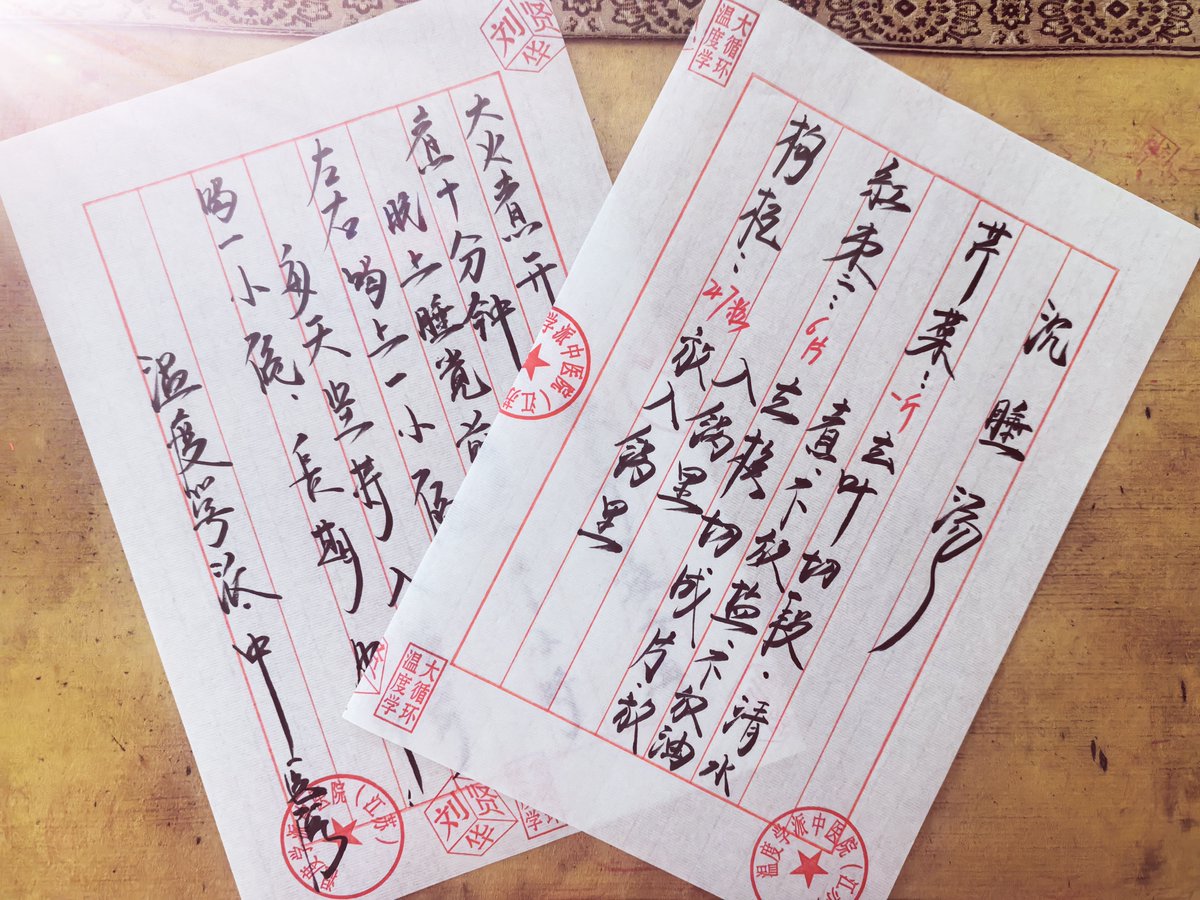 沉睡汤
芹菜:一斤 去叶切段.清水
煮.不放盐.不放油
红枣:6片 去核切成片.放
入锅里
枸杞:47粒 放入锅里
大火煮开
煮十分钟
晚上睡觉前
左右喝上一小碗.入
每天坚持
喝一小碗.长期
温度学派中医院
大循环
温度学
大循环
温度学
温度学派中医院(江苏
学派中医院(江苏
刘贤华
刘贤华
院(江苏)